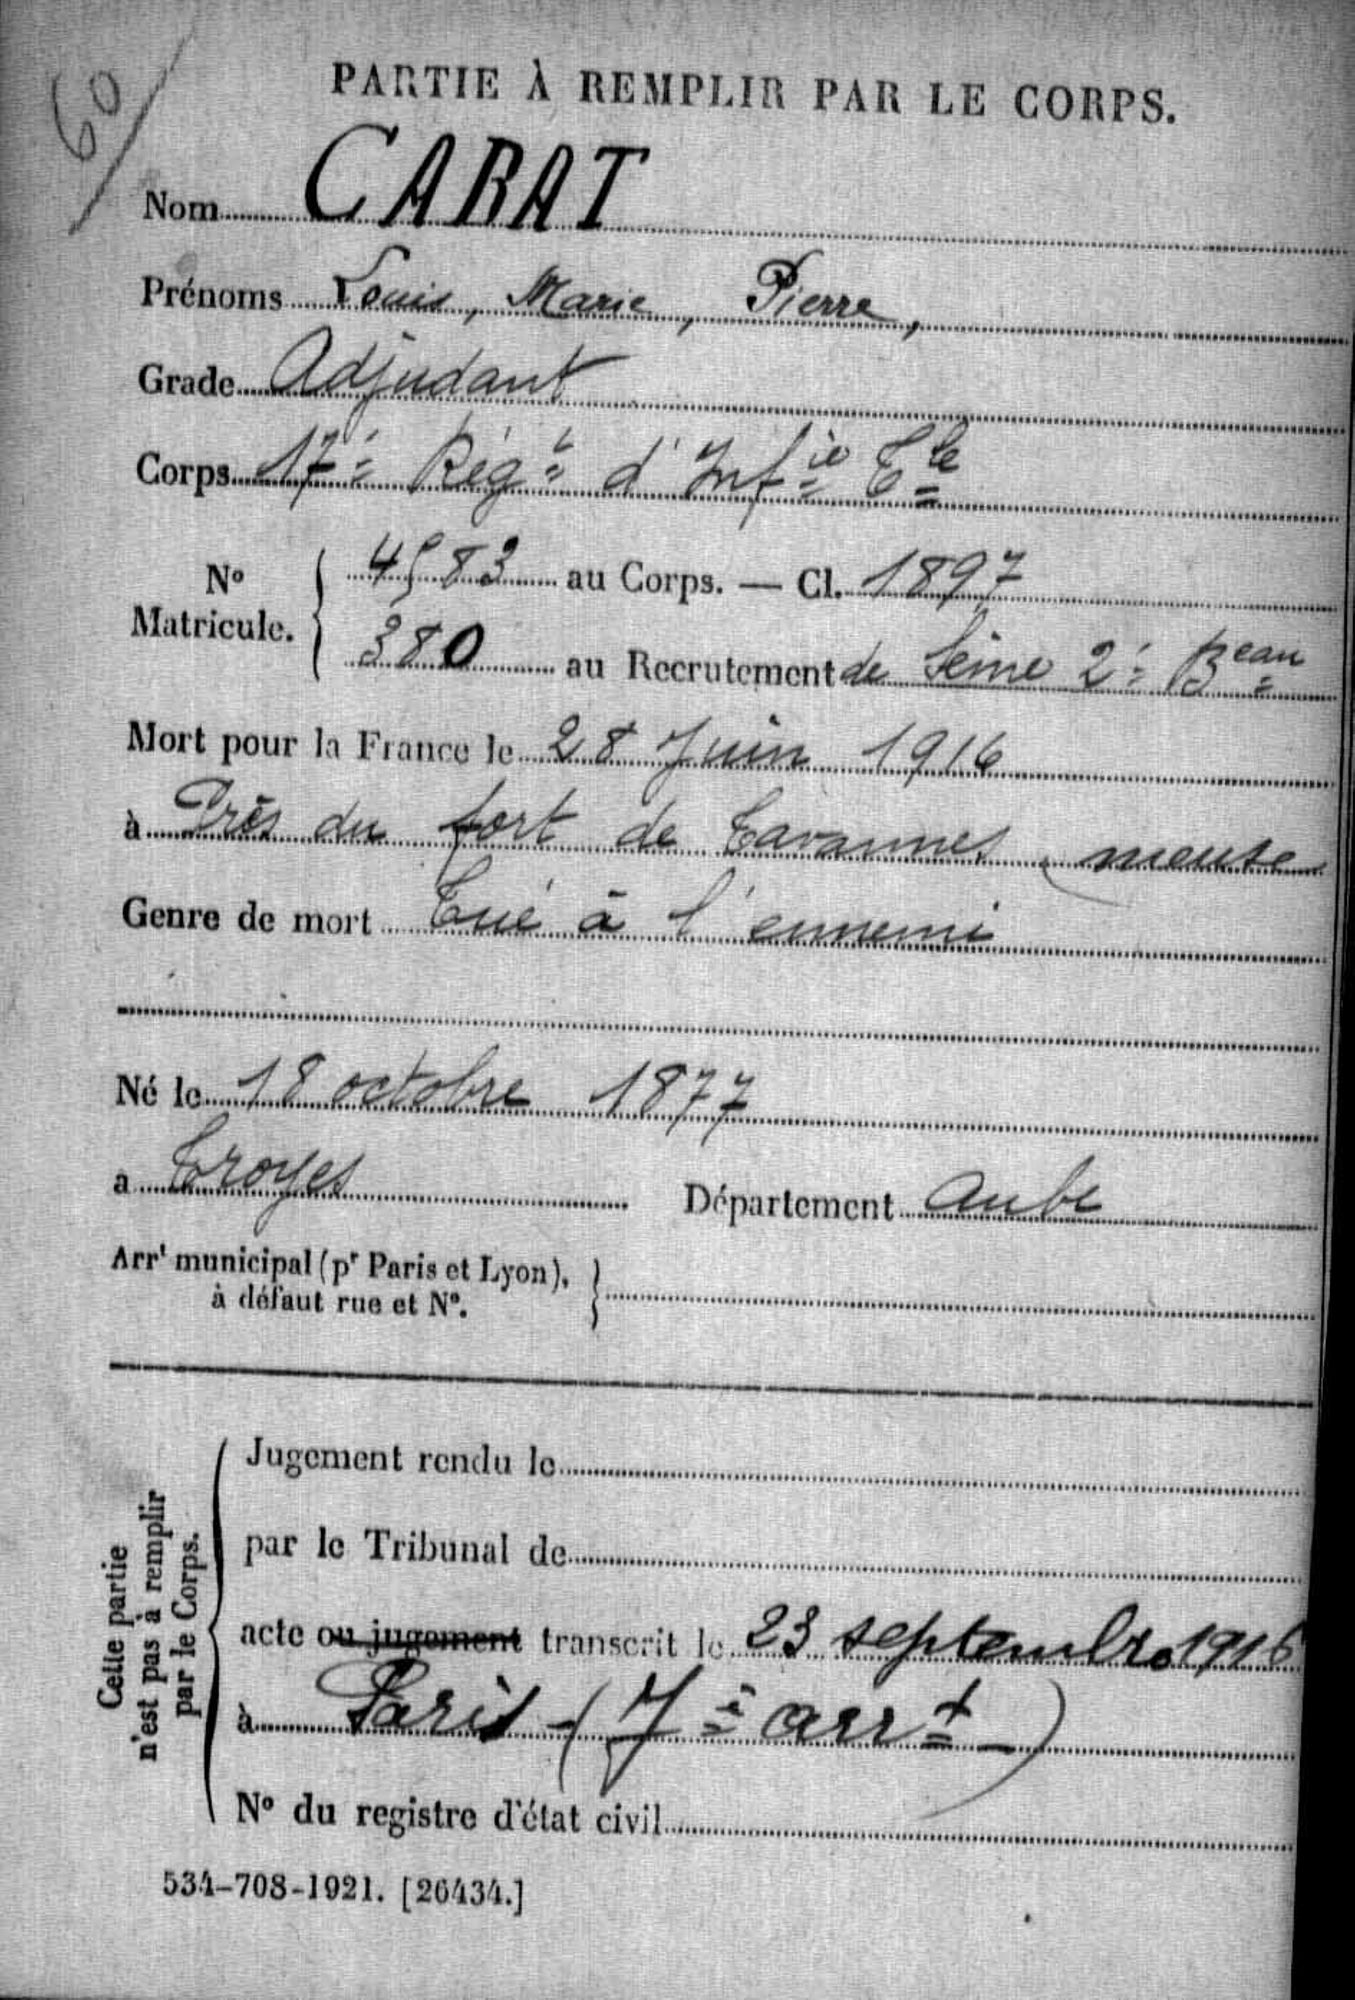 60
PARTIE À REMPLIR PAR LE CORPS.
Nom CABAT
Prénoms Louis, Marie, Pierre,
Grade Adjudant
Corps 17è Régt d'Infie Tle
No Matricule. { 4583 au Corps. — Cl. 1897
380 au Recrutement de Seine 2è Beau
Mort pour la France le 28 Juin 1916
à Près du fort de Tavannes, meuse
Genre de mort Tué à l'ennemi
Né le 18 octobre 1877
a Troyes Département Aube
Arrt municipal (pr Paris et Lyon), à défaut rue et No.
Cette partie n'est pas à remplir par le Corps.
Jugement rendu le
par le Tribunal de
acte ou jugement transcrit le 23 septembre 1916
à Paris - (7è arrt)
No du registre d'état civil
534-708-1921. [26434.]